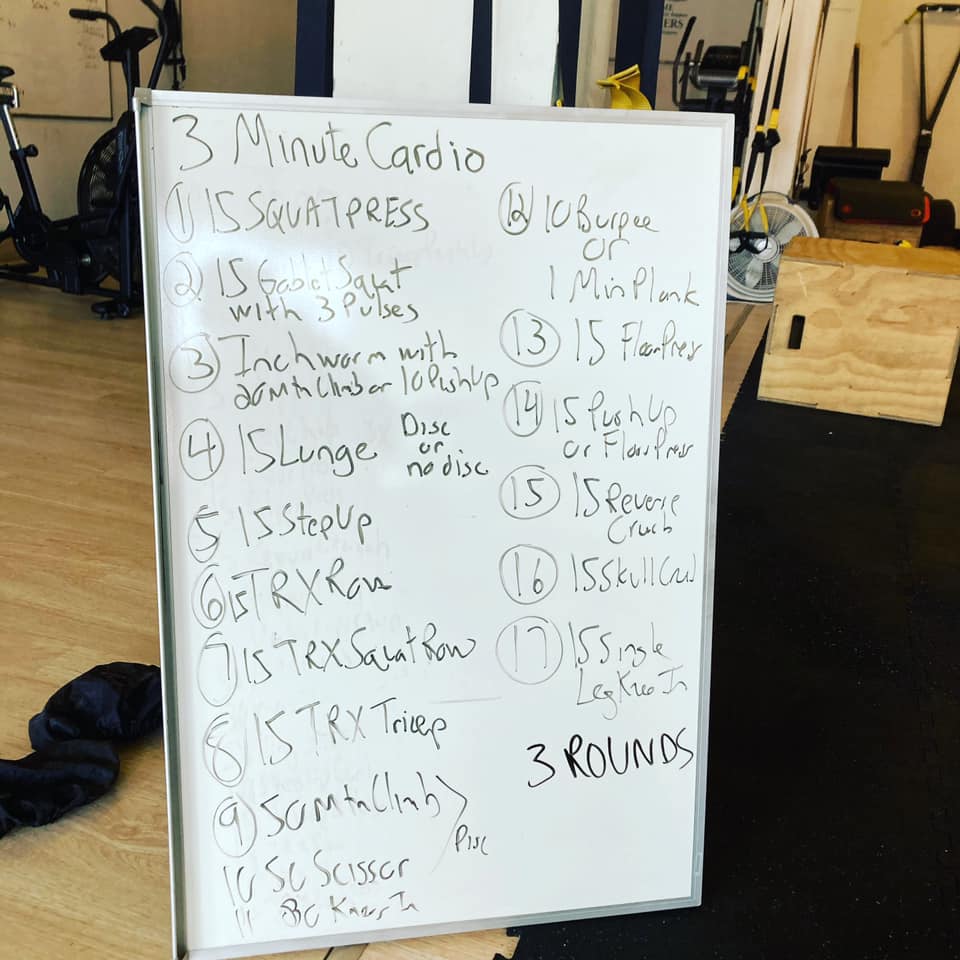 3 Minute Cardio
1 15 SQUAT PRESS
2 15 Goblet Squat
with 3 Pulses
3 Inchworm with
20 Mtn Climb or 10 PushUp
4 15 Lunge Disc
or
no disc
5 15 Step Up
6 15 TRX Row
7 15 TRX Squat Row
8 15 TRX Tricep
9 50 Mtn Climb
Disc
10 50 Scissor
11 Knees In
12 10 Burpee
or
1 Min Plank
13 15 Floor Press
14 15 Push Up
or Floor Press
15 15 Reverse
Crunch
16 15 Skull
17 15 Single
Leg Knee In
3 ROUNDS
ERS